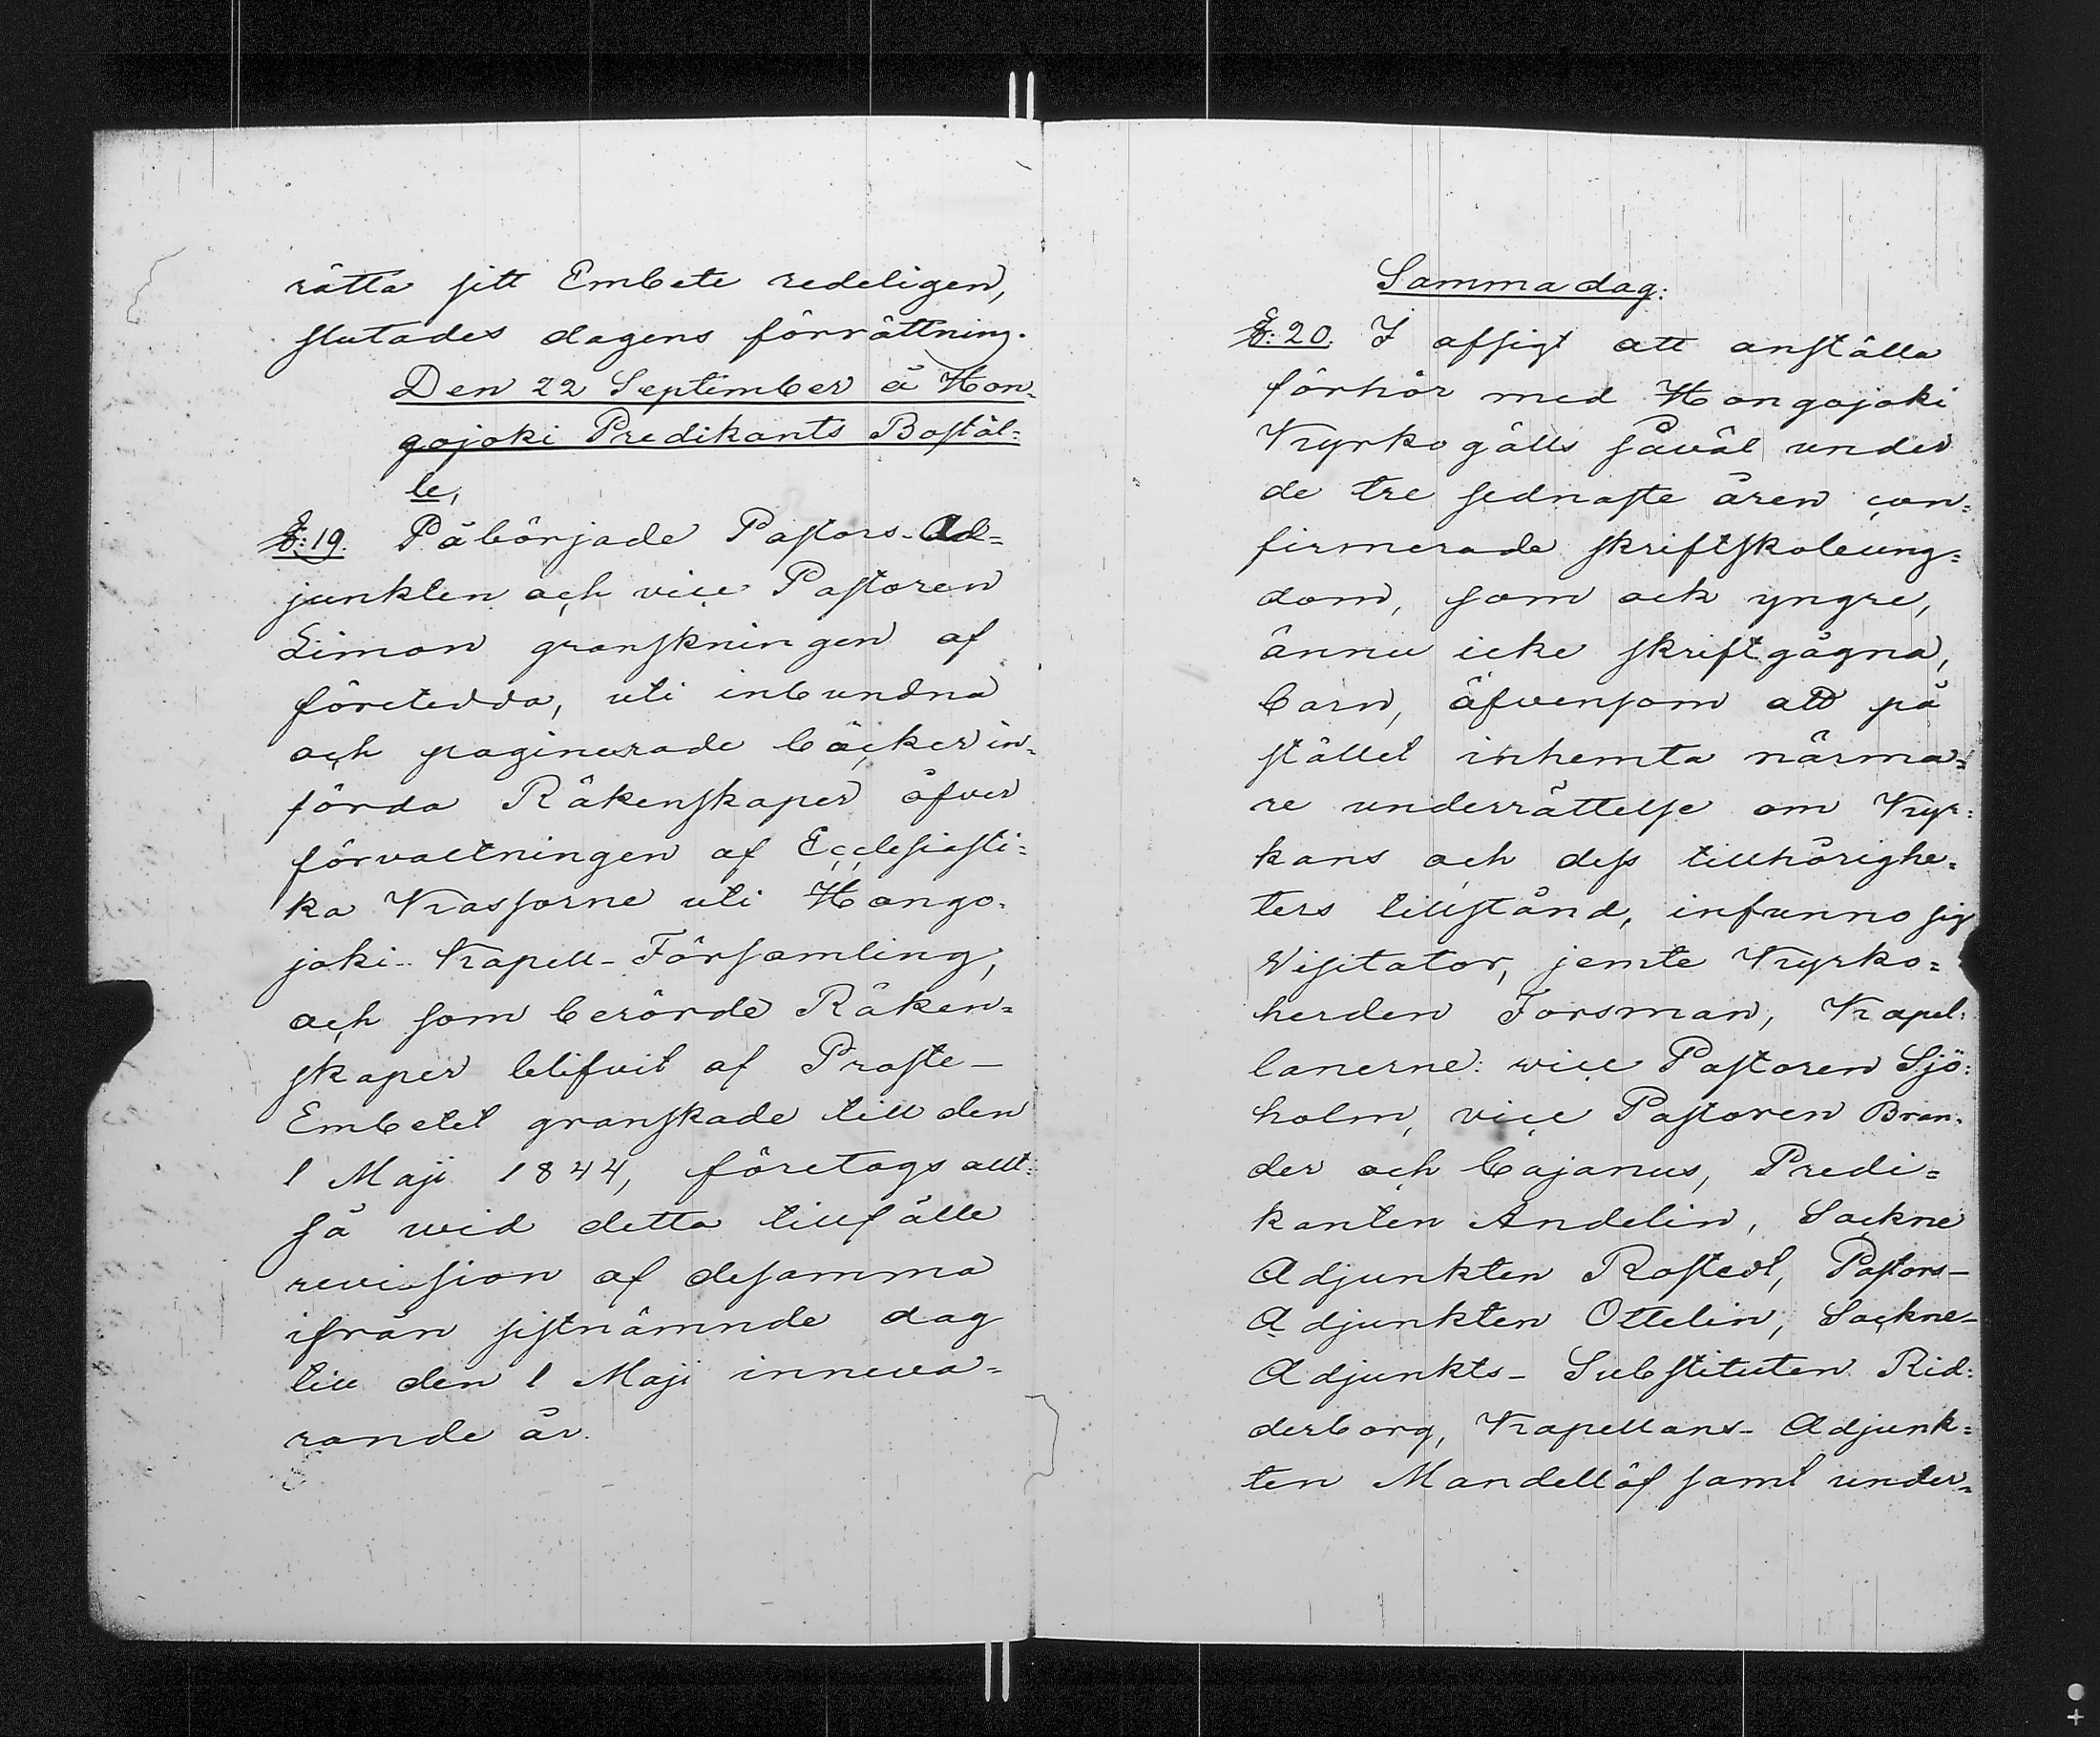 rätta sitt Embete redeligen,
slutades dagens förrättning.
Den 22 September å Hon-
gojoki Predikants Bostäl=
le,
§: 19. Påbörjade Pastors-Ad=
junkten och vice Pastoren
Limon granskningen af
företedda, uti inbundna
och paginerade böcker in-
förda Räkenskaper öfver
förvaltningen af Ecclesiasti=
ka Kassorne uti Hongo-
joki- Kapell-Församling,
och som berörde Räken=
skaper blifvit af Proste-
Embetet granskade till den
1 Maji 1844, företogs allt=
så wid detta tillfälle
revission af desamma
ifrån sistnämnde dag
till den 1 Maji inneva=
rande år.
Samma dag:
§: 20. I afsigt att anställa
förhör med Hongojoki
Kyrkogälls såväl under
de tre sednaste åren con=
firmerade skriftskoleung=
dom, som ock yngre,
ännu icke skriftgågna,
barn, äfvensom att på
stället inhemta närma=
re underrättelse om Kyr=
kans och dess tillhörighe=
ters tillstånd, infunno sig
Visitator, jemte Kyrko=
herden Forsman, Kapel=
lanerne: vice Pastoren Sjö=
holm, vice Pastoren Bran-
der och Cajanus, Predi=
kanten Andelin, Sockne
Adjunkten Rostedt, Pastors-
Adjunkten Ottelin, Sockne-
Adjunkts- Substituten Rid=
derborg, Kapellans- Adjunk=
ten Mandellöf samt under=